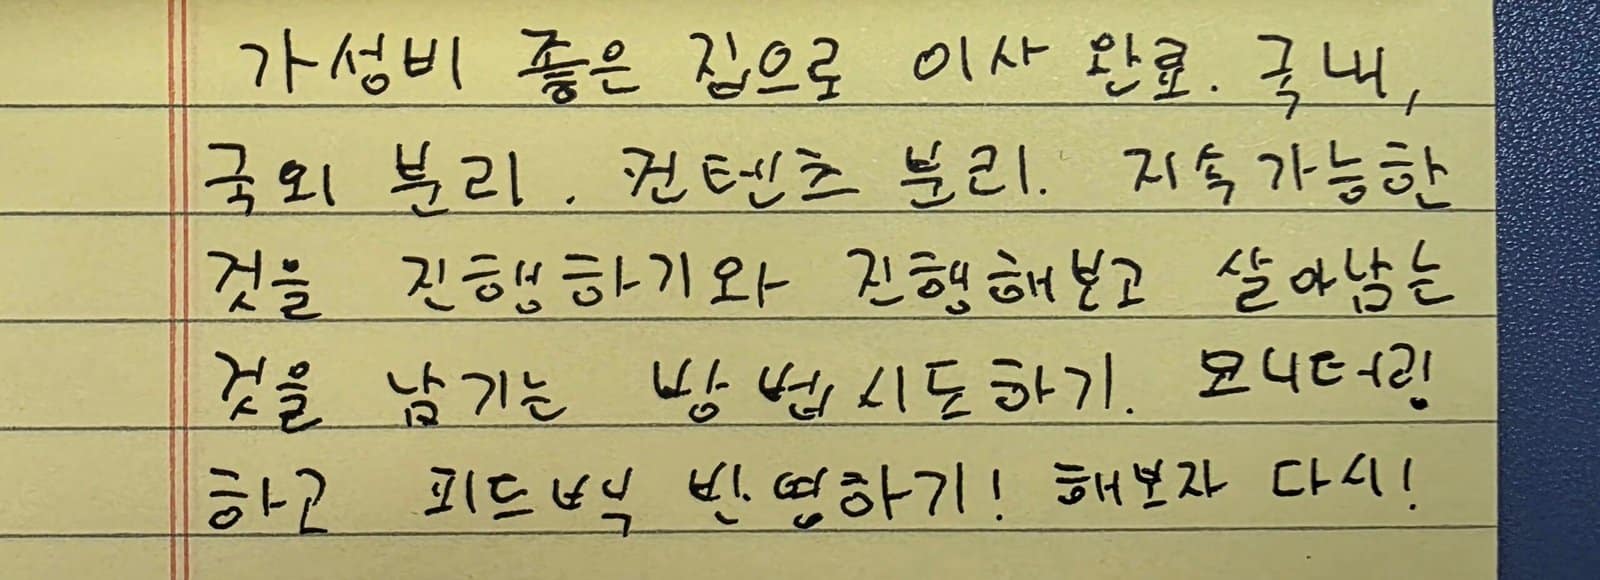 가성비 좋은 집으로 이사 완료. 국내,
국외 분리. 컨텐츠 분리. 지속가능한
것을 진행하기와 진행해보고 살아남는
것을 남기는 방법시도하기. 모니터링
하고 피드백 반영하기! 해보자 다시!